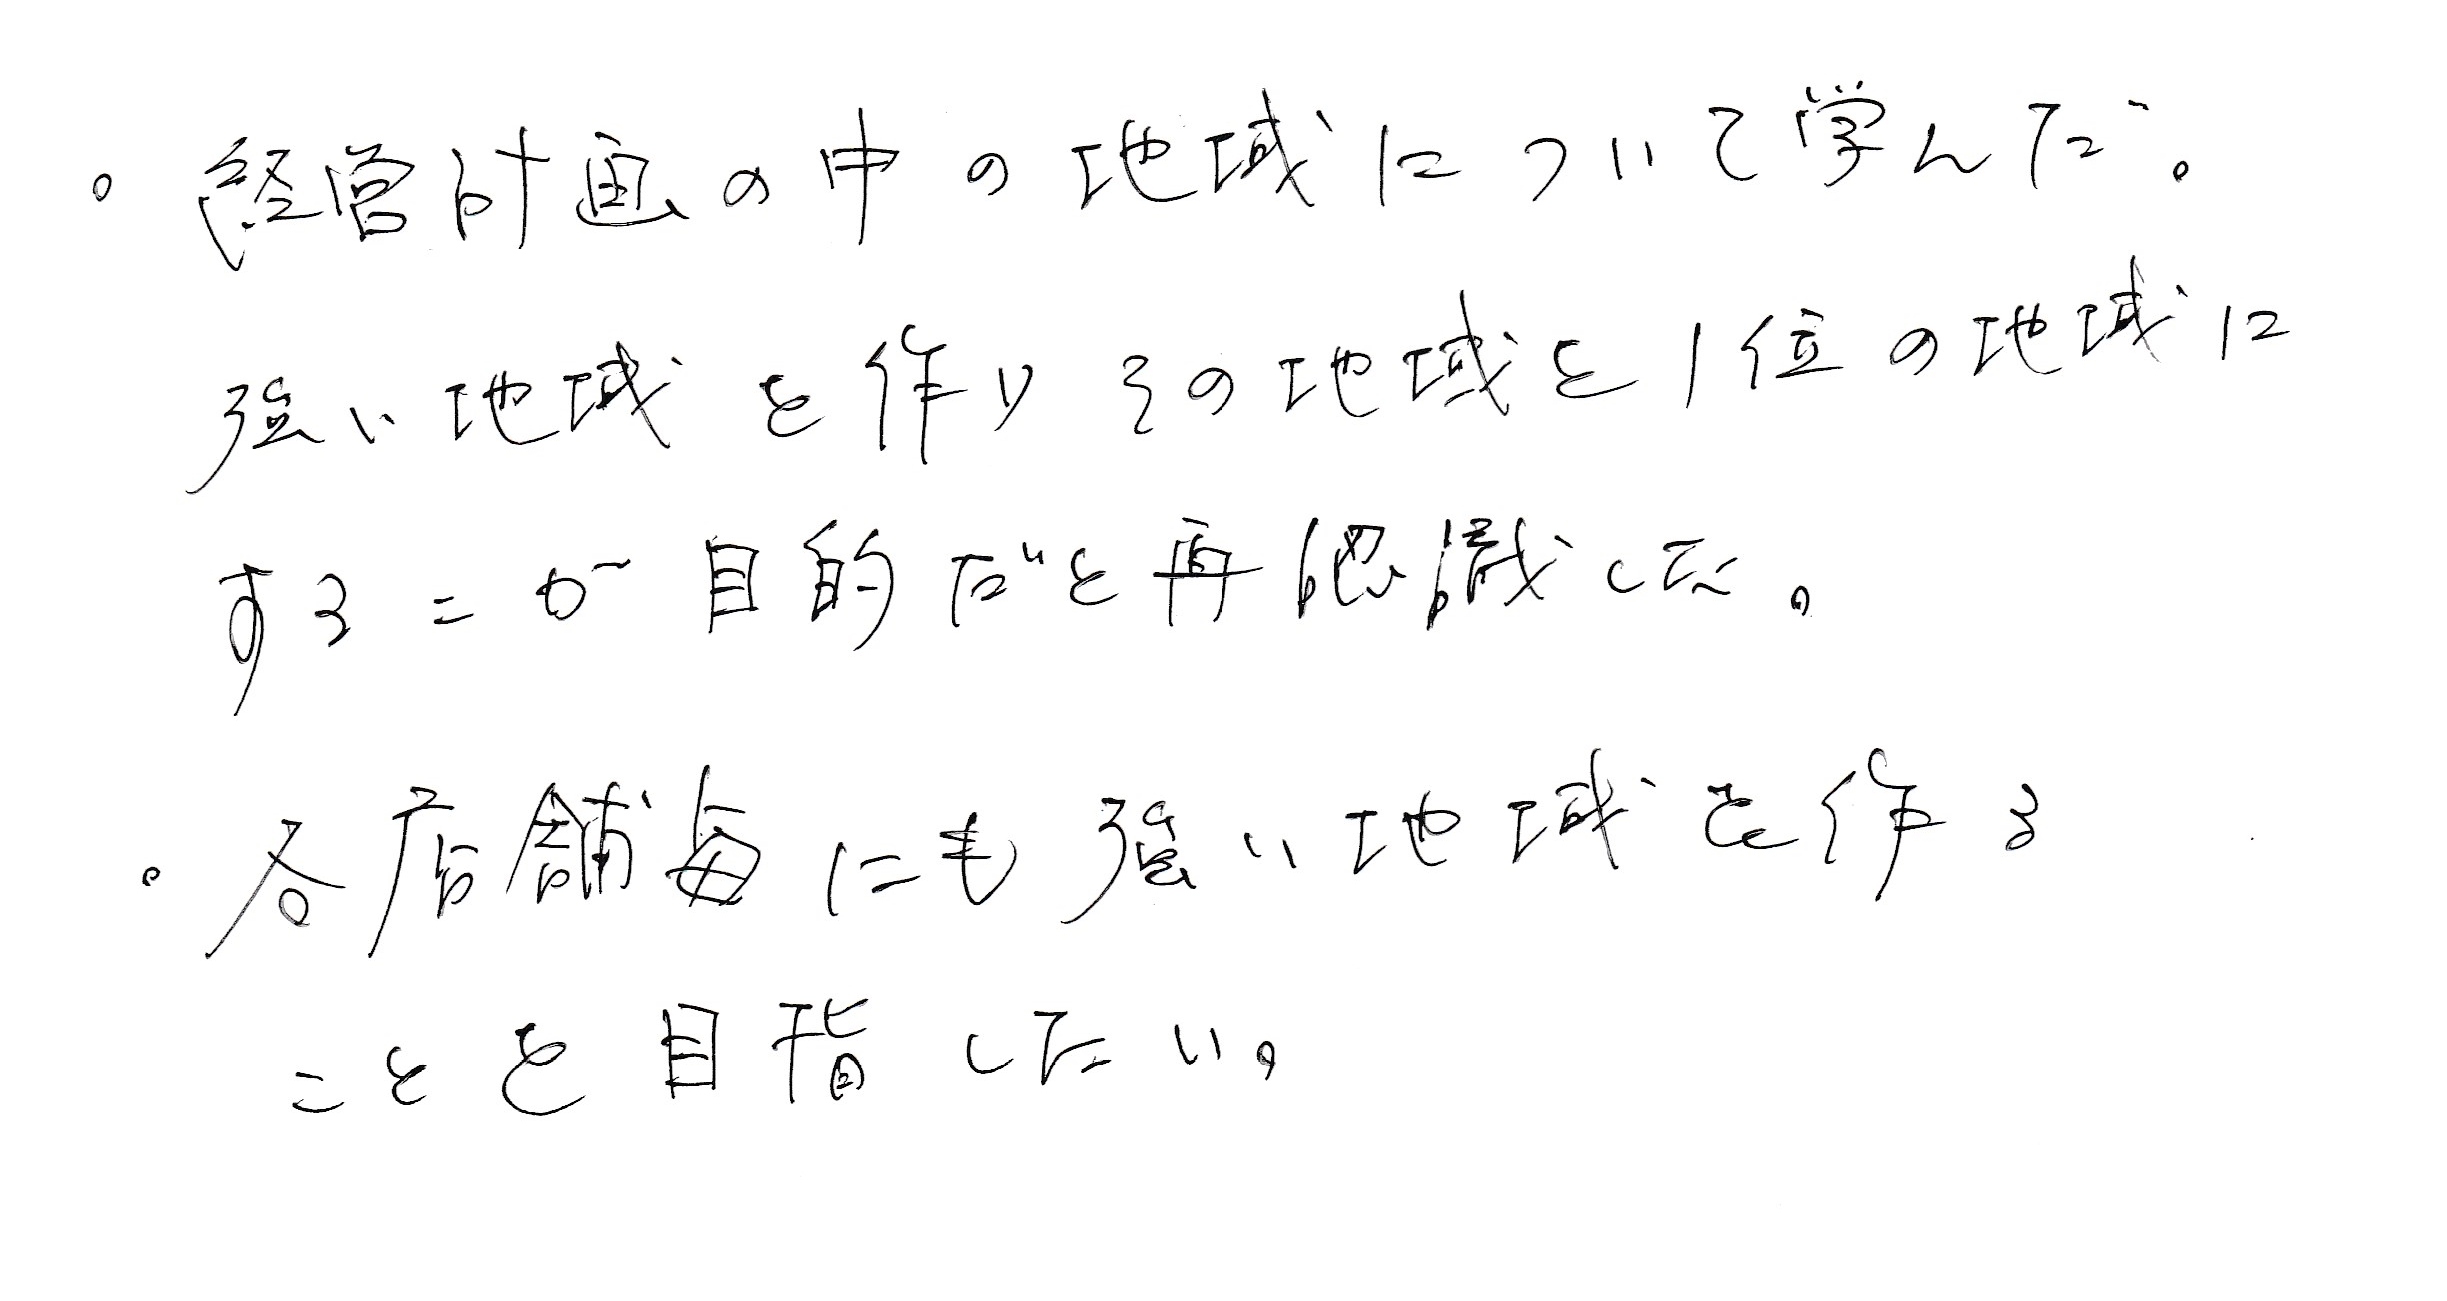 。経営計画の中の地域について学んだ。
強い地域を作りその地域を1位の地域に
するこが目的だと再認識した。
。各店舗毎にも強い地域を作る
ことを目指したい。